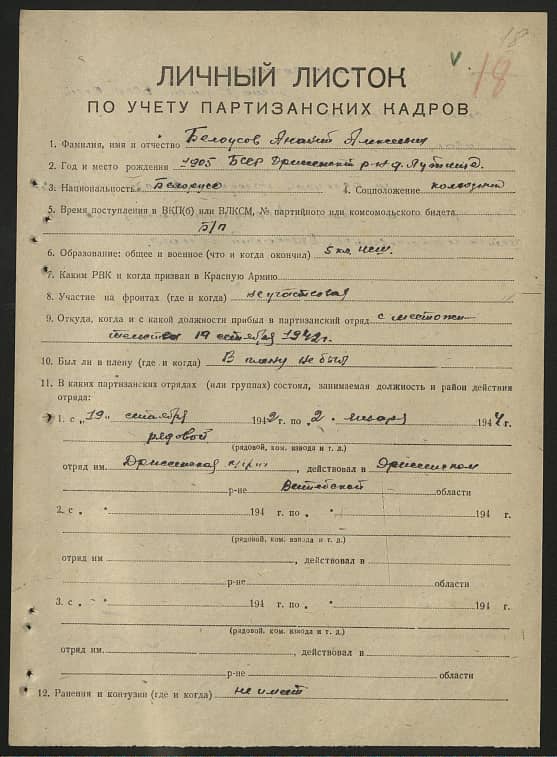 18
v 18
ЛИЧНЫЙ ЛИСТОК
ПО УЧЕТУ ПАРТИЗАНСКИХ КАДРОВ
1. Фамилия, имя и отчество Белоусов
2. Год и место рождения 1905 БССР Дриссенский р-н д.
3. Национальность Белорусс 4. Соцположение колхозник
5. Время поступления в ВКП(б) или ВЛКСМ, № партийного или комсомольского билета
Б/п
6. Образование: общее и военное (что и когда окончил) 5 кл.
7. Каким РВК и когда призван в Красную Армию
8. Участие на фронтах (где и когда) не участвовал
9. Откуда, когда и с какой должности прибыл в партизанский отряд с местожи-
тельства 19 сентября 1942г.
10. Был ли в плену (где и когда) В плену не был
11. В каких партизанских отрядах (или группах) состоял, занимаемая должность и район действия
отряда:
1. с „19" сентября 1942 г. по „2" января 1944 г.
рядовой
(рядовой, ком. взвода и т. д.)
отряд им. Дриссенская, действовал в Дриссенском
р-не Витебской области
2. с „ " 194 г. по „ " 194 г.
(рядовой, ком. взвода и т. д.)
отряд им , действовал в
р-не области
3. с „ " 194 г. по „ " 194 г.
(рядовой, ком. взвода и т. д.)
отряд им. , действовал в
р-не области
12. Ранения и контузии (где и когда) не имеет